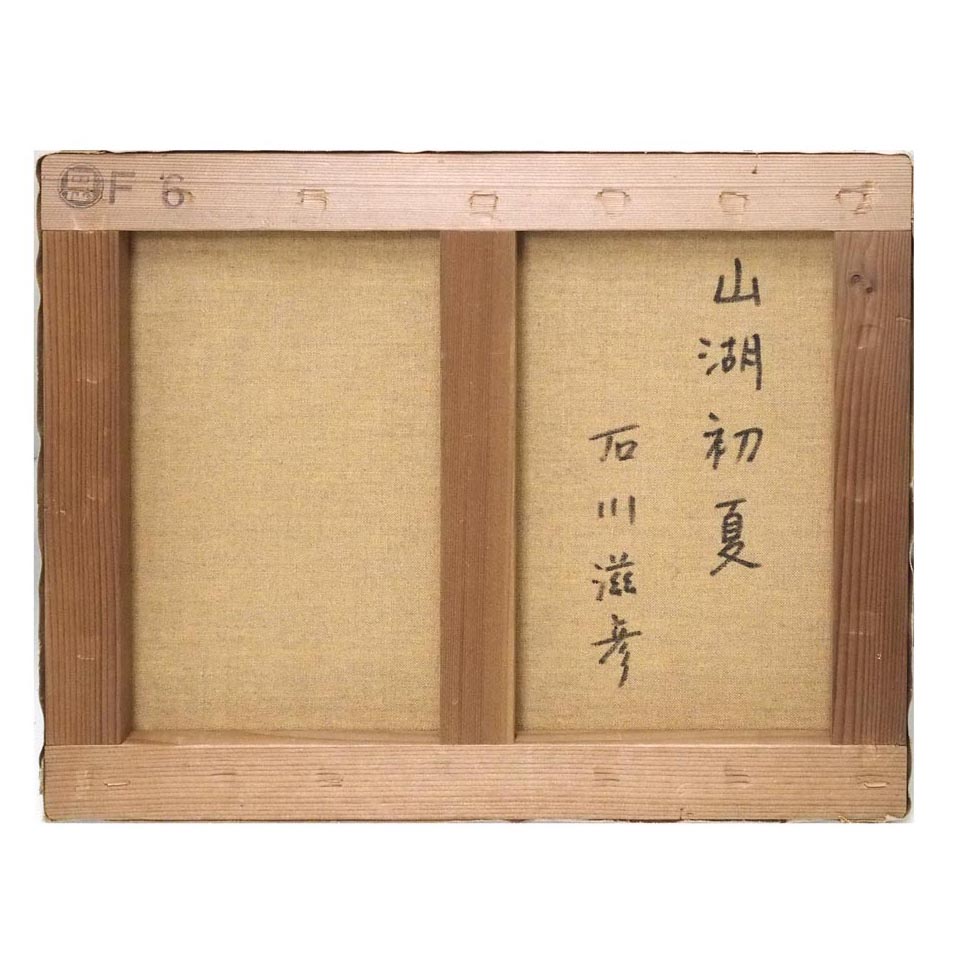 F 6
山湖初夏
石川滋彦